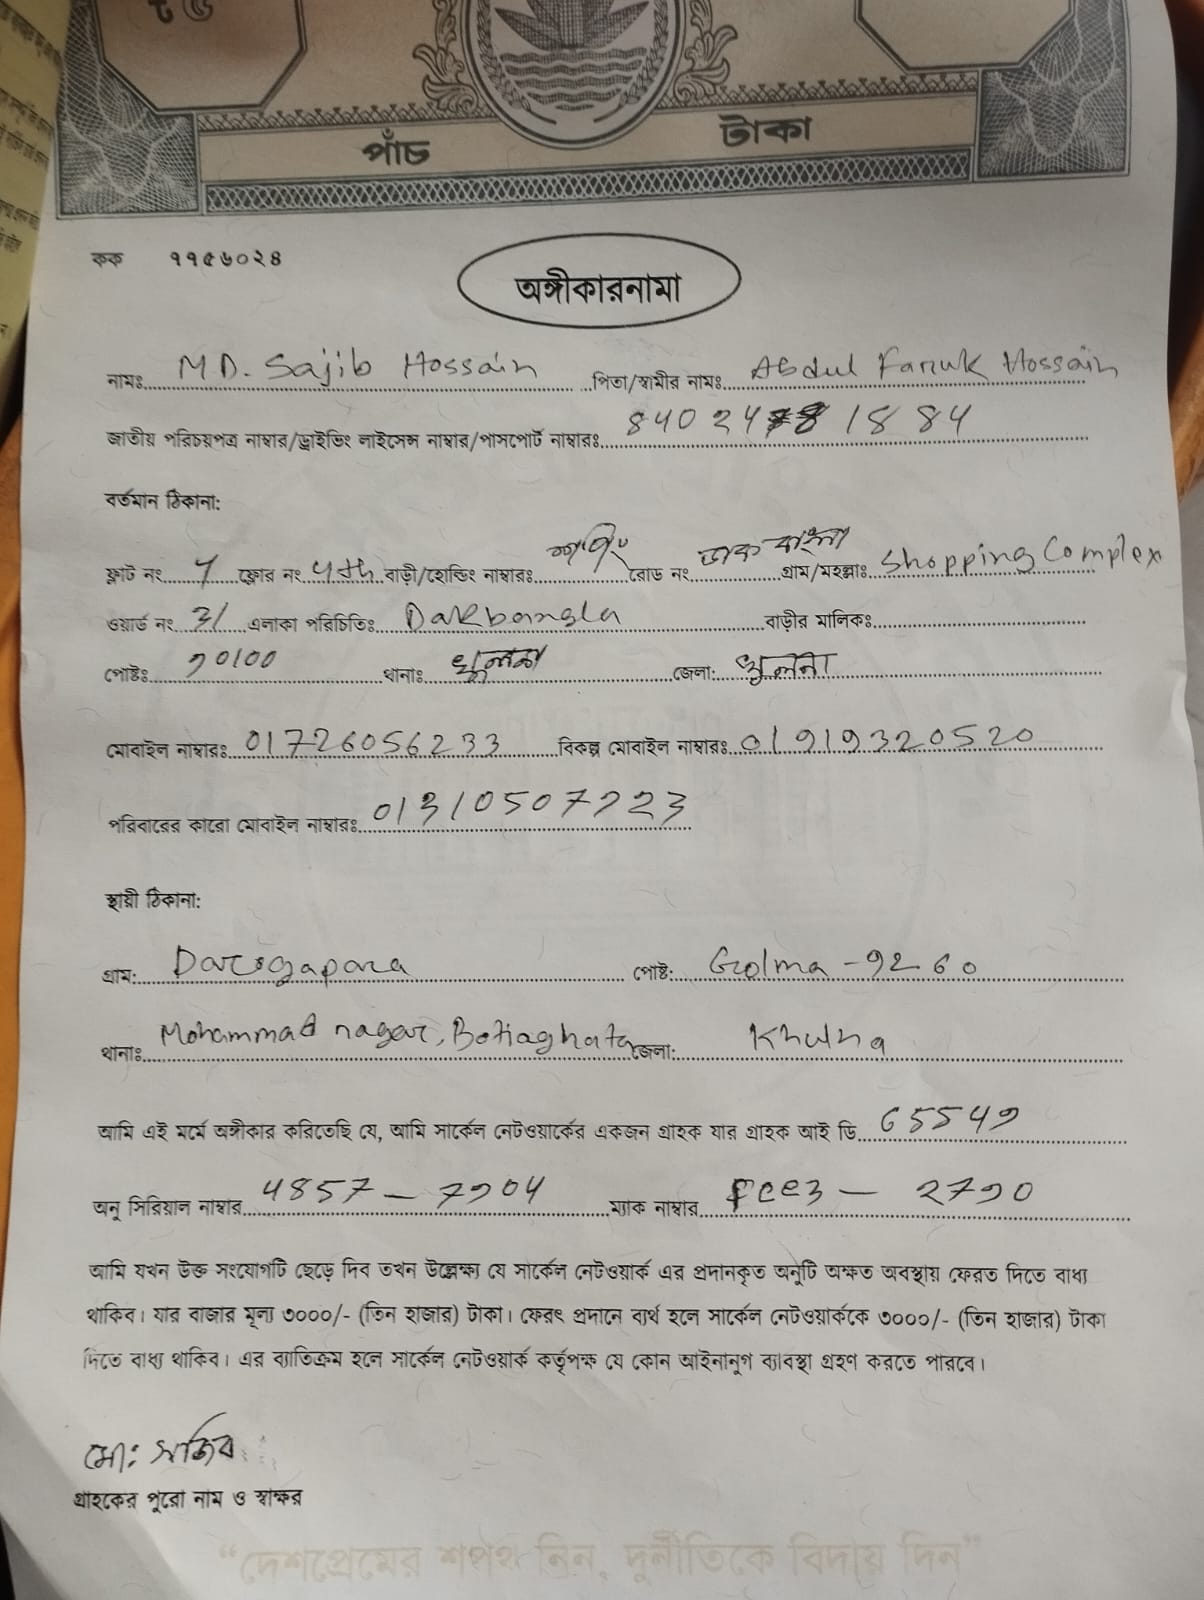 পাঁচ টাকা
কক ৭৭৫৬০২৪
অঙ্গীকারনামা
নামঃ MD. Sajib Hossain পিতা/স্বামীর নামঃ Abdul Faruk Hossain
জাতীয় পরিচয়পত্র নাম্বার/ড্রাইভিং লাইসেন্স নাম্বার/পাসপোর্ট নাম্বারঃ 84024 8 1884
বর্তমান ঠিকানা:
ফ্লাট নং 4 ফ্লোর নং 4th বাড়ী/হোল্ডিং নাম্বারঃ রোড নং ডাক বাংলা গ্রাম/মহল্লাঃ Shopping Complex
ওয়ার্ড নং 21 এলাকা পরিচিতিঃ Dakbangla বাড়ীর মালিকঃ
পোষ্টঃ 90100 থানাঃ খুলনা জেলা: খুলনা
মোবাইল নাম্বারঃ 01726056233 বিকল্প মোবাইল নাম্বারঃ 01919320520
পরিবারের কারো মোবাইল নাম্বারঃ 01310507723
স্থায়ী ঠিকানা:
গ্রাম: Darogapara পোষ্ট: Golma - 9260
থানাঃ Mohammad nagar, Botiaghata জেলা: Khulna
আমি এই মর্মে অঙ্গীকার করিতেছি যে, আমি সার্কেল নেটওয়ার্কের একজন গ্রাহক যার গ্রাহক আই ডি 65549
অনু সিরিয়াল নাম্বার 4857 - 7904 ম্যাক নাম্বার Fee3 - 2790
আমি যখন উক্ত সংযোগটি ছেড়ে দিব তখন উল্লেক্ষ্য যে সার্কেল নেটওয়ার্ক এর প্রদানকৃত অনুটি অক্ষত অবস্থায় ফেরত দিতে বাধ্য
থাকিব। যার বাজার মূল্য ৩০০০/- (তিন হাজার) টাকা। ফেরৎ প্রদানে ব্যর্থ হলে সার্কেল নেটওয়ার্ককে ৩০০০/- (তিন হাজার) টাকা
দিতে বাধ্য থাকিব। এর ব্যতিক্রম হলে সার্কেল নেটওয়ার্ক কর্তৃপক্ষ যে কোন আইনানুগ ব্যাবস্থা গ্রহণ করতে পারবে।
মো: সজিব
গ্রাহকের পুরো নাম ও স্বাক্ষর
“দেশপ্রেমের শপথ নিন, দুর্নীতিকে বিদায় দিন”